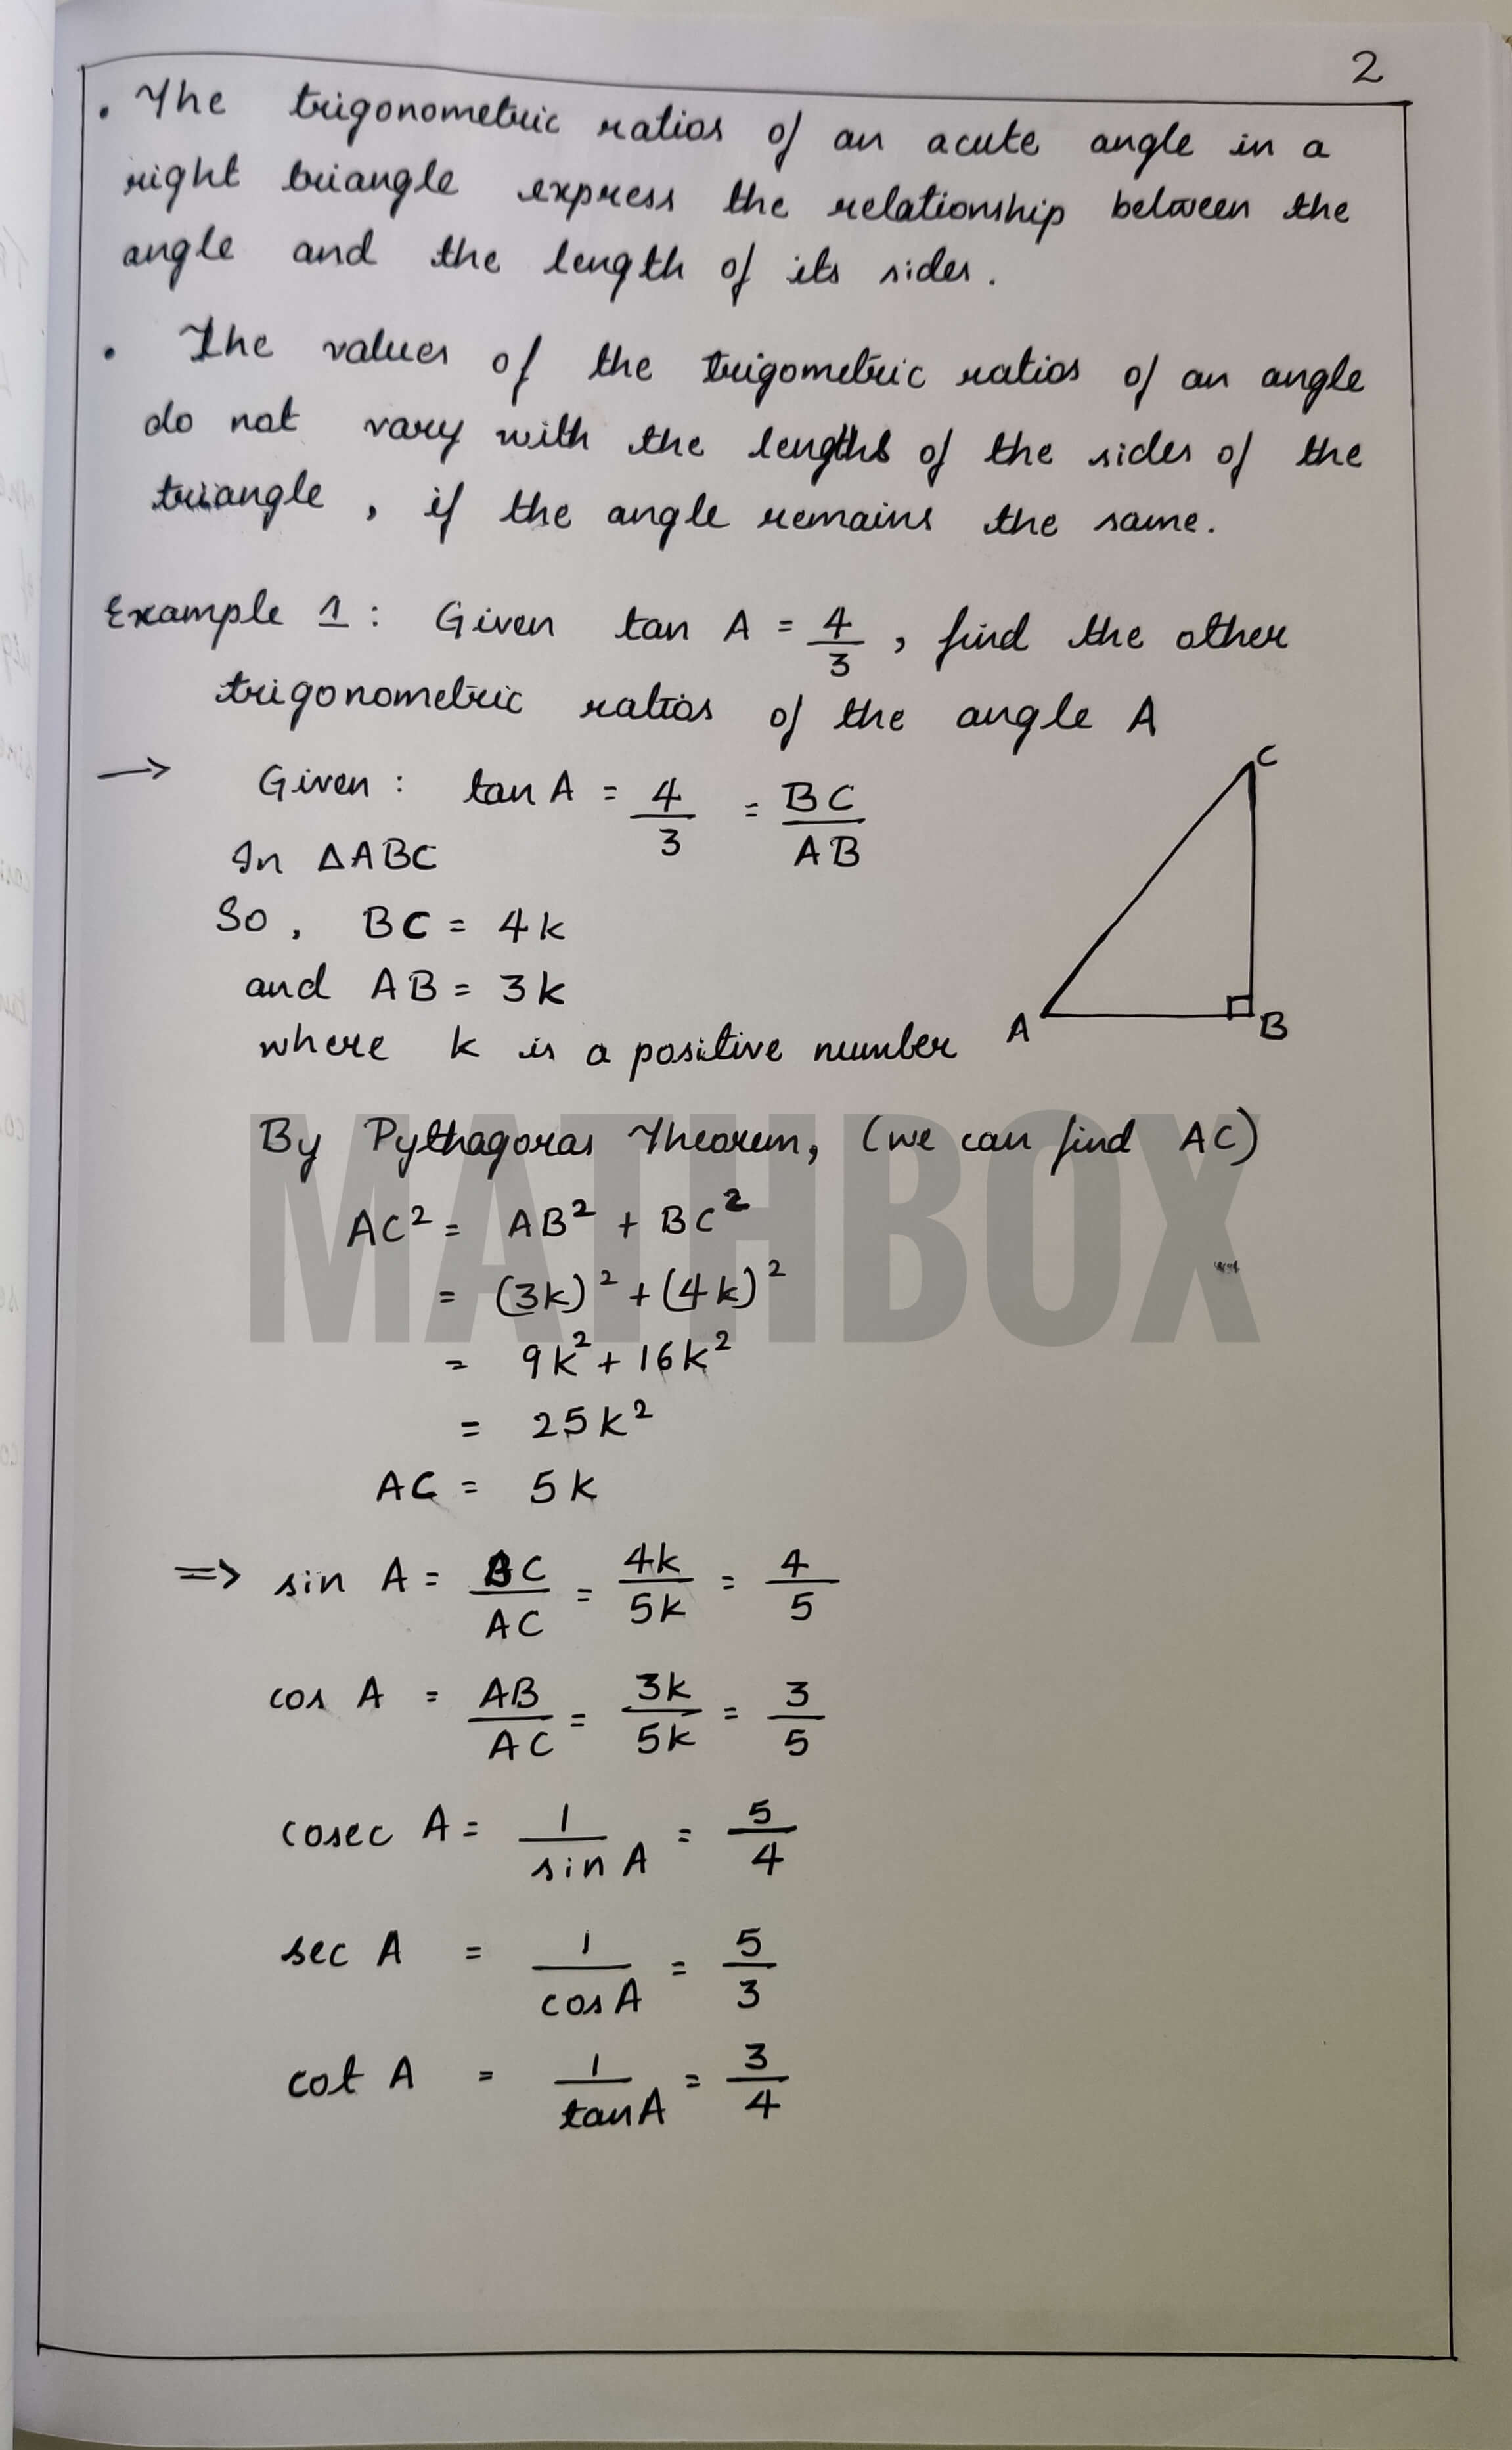 2
. The trigonometric ratios of an acute angle in a
right triangle express the relationship between the
angle and the length of its sides.
. The values of the trigometric ratios of an angle
do not vary with the lengths of the sides of the
triangle, if the angle remains the same.
Example 1: Given tan A = 4/3, find the other
trigonometric ratios of the angle A
→ Given: tan A = 4/3 = BC/AB
In ΔABC
So, BC = 4k
and AB = 3k
where k is a positive number
C
A
B
By Pythagoras Theorem, (we can find AC)
MATHBOX
AC² = AB² + BC²
= (3k)² + (4k)²
= 9k² + 16k²
= 25k²
AC = 5k
=> sin A = BC/AC = 4k/5k = 4/5
cos A = AB/AC = 3k/5k = 3/5
cosec A = 1/sin A = 5/4
sec A = 1/cos A = 5/3
cot A = 1/tan A = 3/4